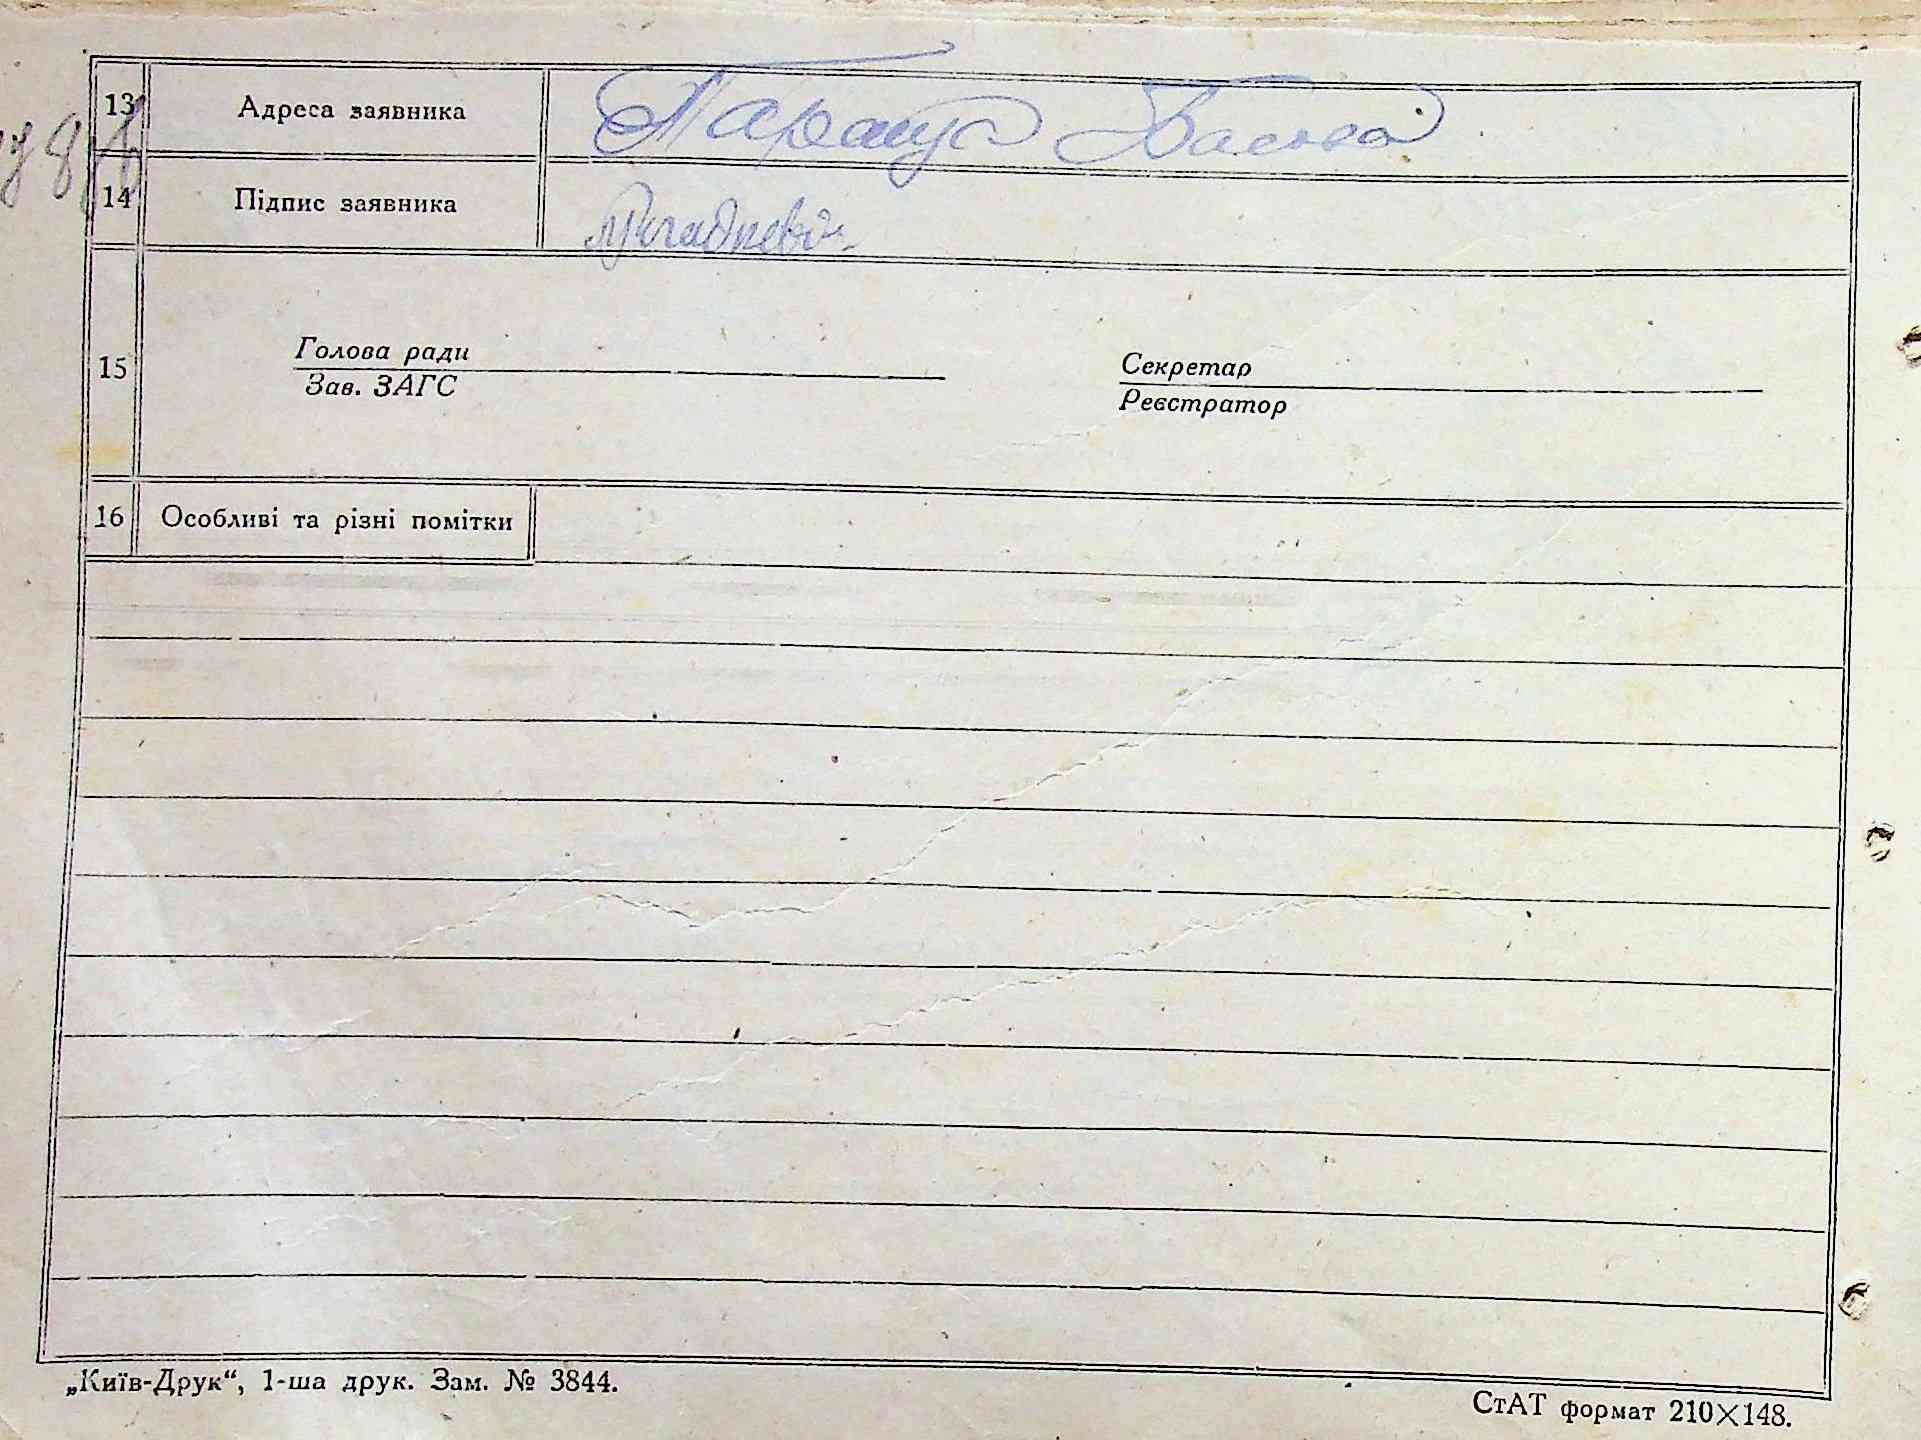 13 Адреса заявника
14 Підпис заявника
15
Голова ради
Зав. ЗАГС
Секретар
Реєстратор
16 Особливі та різні помітки
„Київ-Друк“, 1-ша друк. Зам. № 3844.
СтАТ формат 210×148.